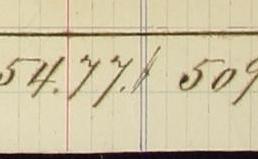 54.77. 509